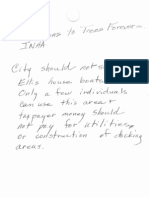 to Trees Forever
INHA
City should not
Ellis house boats
Only a few individuals
can use this area &
taxpayer money should
not pay for utilities,
or construction of docking
areas.